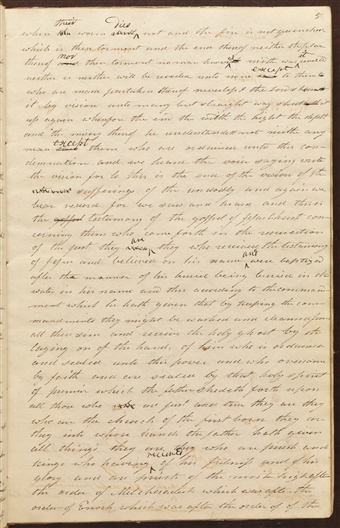 5
when their worm dies not and the fire is not quenched
which is their torment and the end thereof neither the place
thereof nor their torment no man knows neither was it
neither is neither will be revealed unto man except to them
who are made partakers thereof nevertheless the Lord
it by vision unto many but straight way shut it
up again wherefore the end the width the hight the depth
and the misery thereof he understandeth not neith any
man except them who are ordained unto this con
demnation and we heard the voice saying write
the vision for lo this is the end of the vision of the
sufferings of the ungodly and again we
bear record for we saw and heard and this is
the testimony of the gospel of Jesus Christ con
cerning them who come forth in the resurrection
of the just they are they who received the testimony
of Jesus and believed on his name and were baptized
after the manner of his burial being buried in the
water in his name and this according to the command
ment which he hath given that by keeping the com
mandments they might be washed and cleansed from
all their sins and receive the holy ghost by the
laying on of the hands of him who is ordained
and sealed unto this power and who overcome
by faith and are sealed by that holy spirit
of promise which the father sheddeth forth upon
all those who are just and true they are they
who are the church of the first born they are
they into whose hands the father hath given
all things they are they who are priests and
kings who having received of his fullness and of his
glory and are priests of the most high after
the order of Melchesadeck which was after the
order of Enoch which was after the order of the